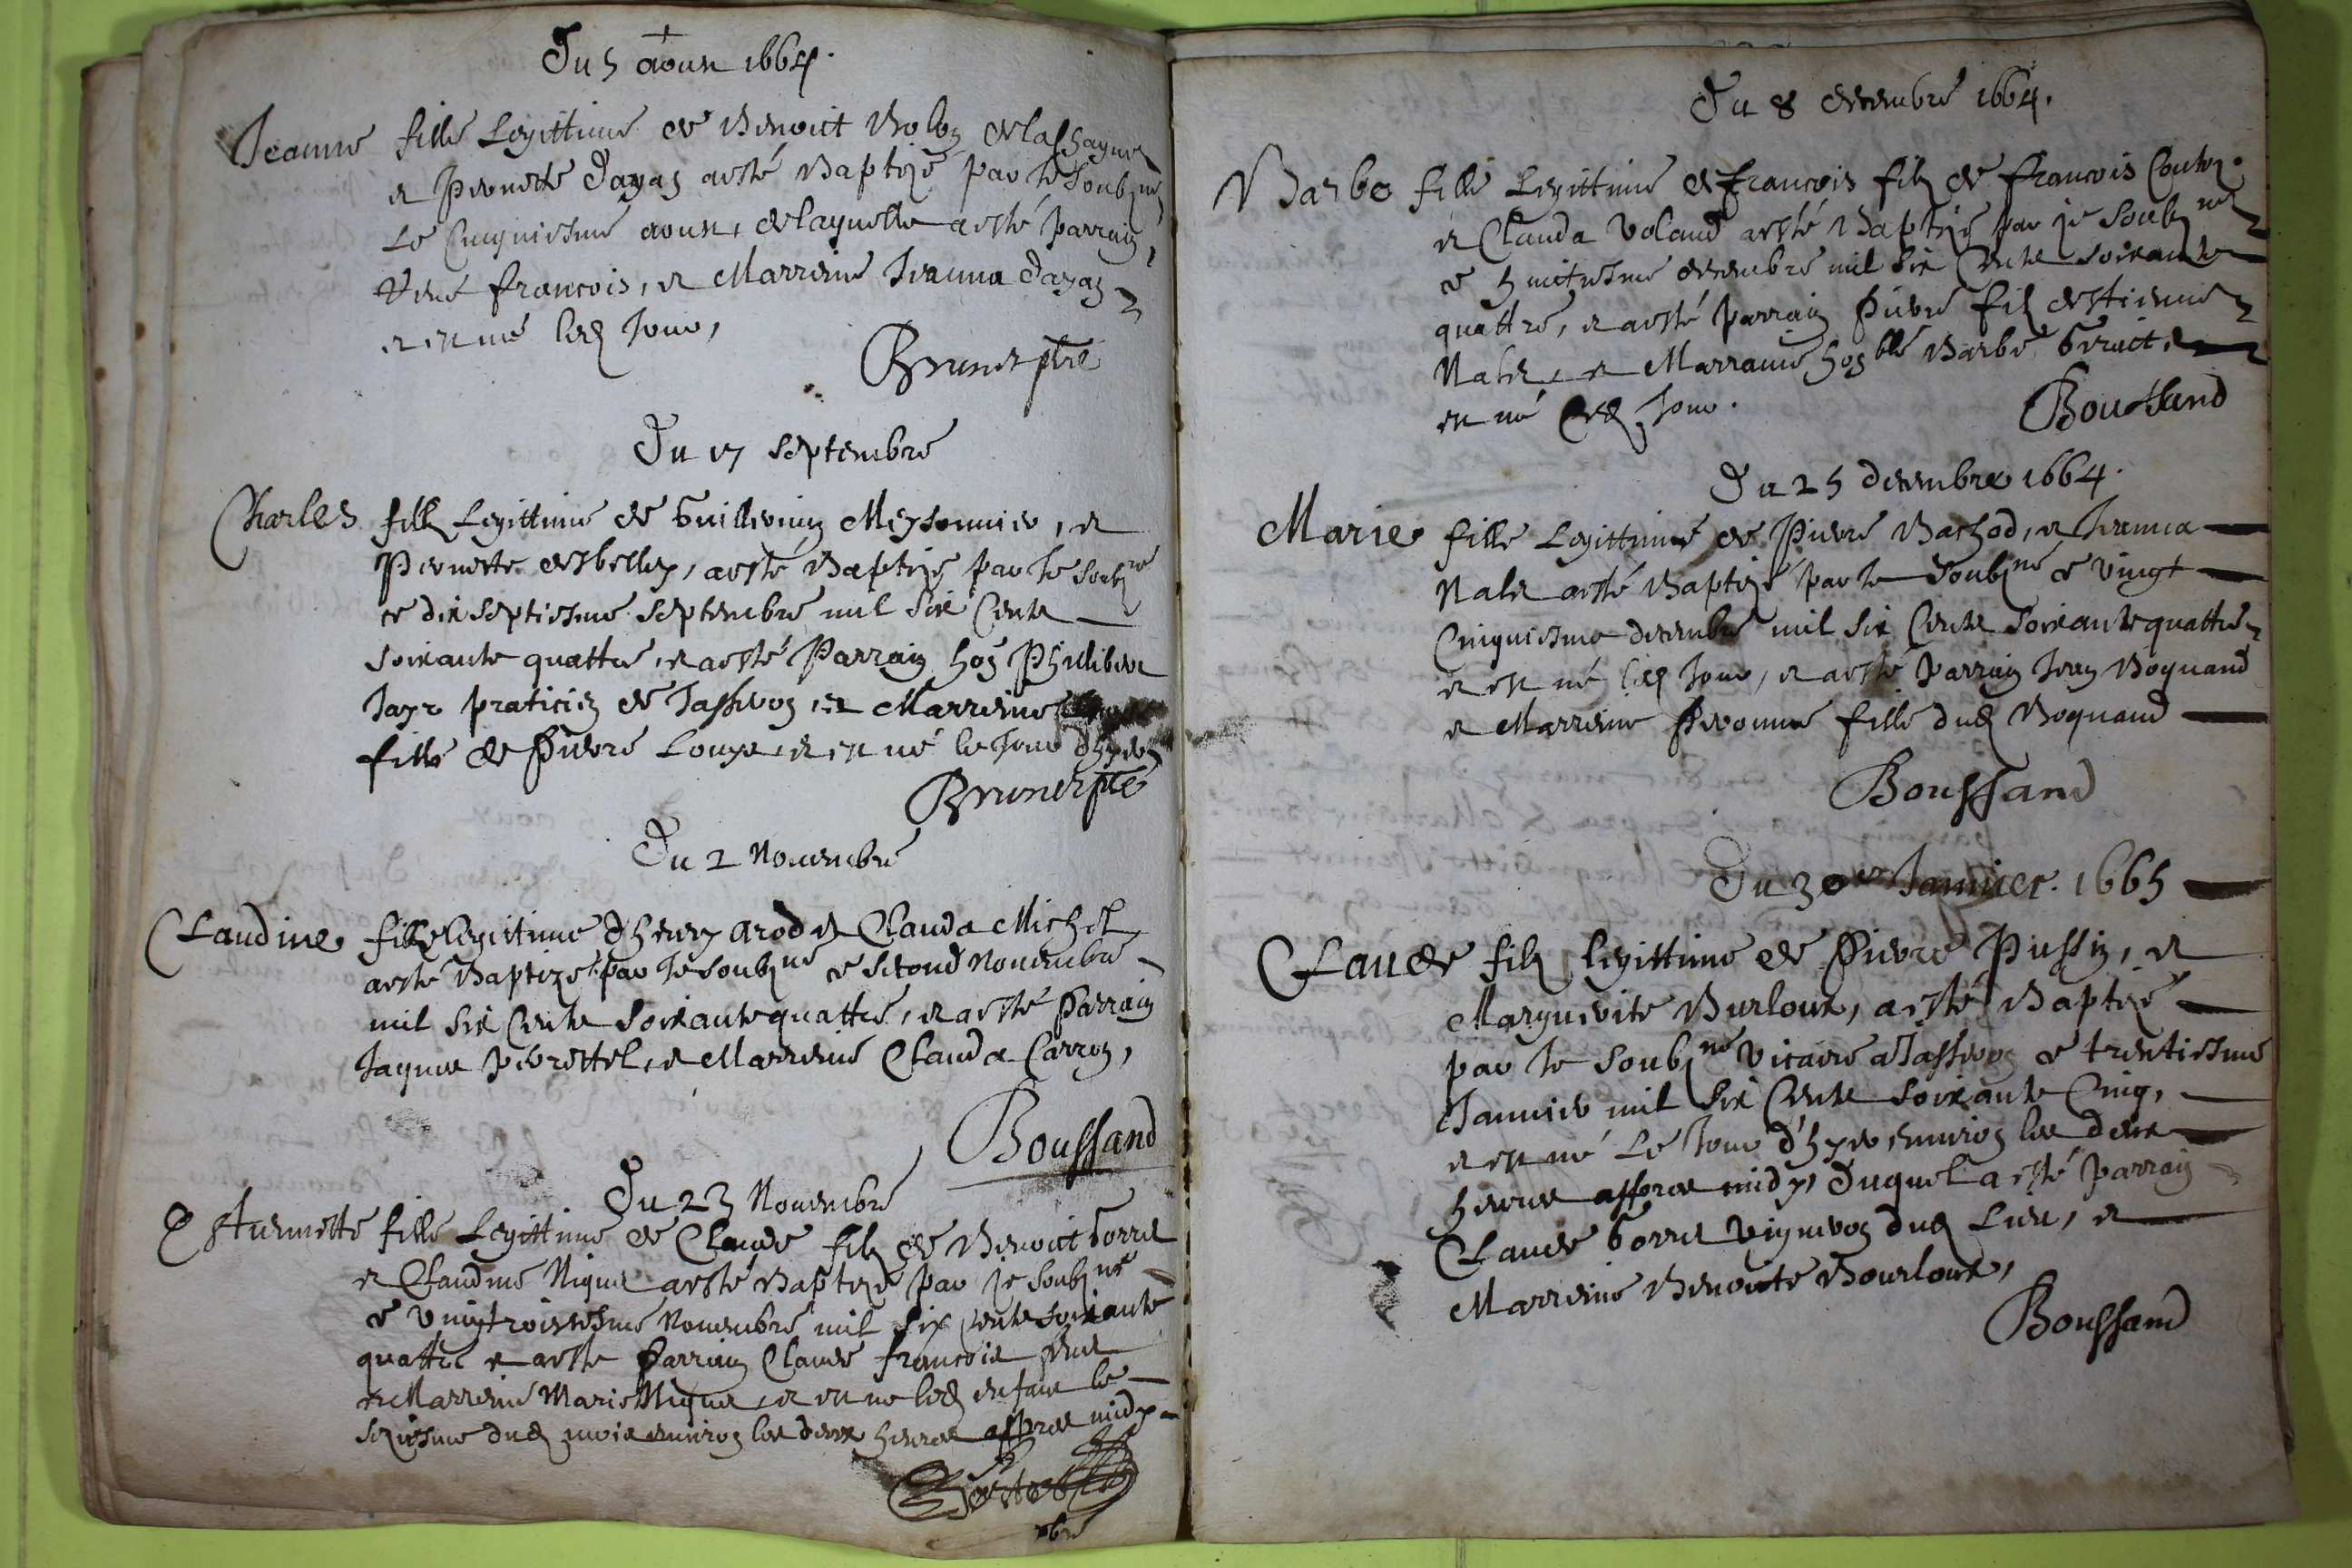 Du 5 aoust 1664.
Jeanne fille Legittime de Benoict Bolon de lassagne
et Pernette Dayan aesté Baptizé par Je Soubzné
Le Cinquiesme aoust, de laquelle aesté parrain
René francois, et Marreine Jeanna Dayan
et est né led Jour,
Brunet pbre
Du 17 septembre
Charles filz Legittime de Guillermin Meysonnier, et
Pernette, aesté Baptizé par Je soubzné
ce dix septiesme septembre mil six Cents
soixante quattre, et aesté Parrain hon Philibert
Jayr praticien de Jasseron, et Marreine
fille de Pierre Louys, et est né le Jour d'hyer
Brunet pbre
Du 2 Nouembre
Claudine fille legittime d'henry arod et Clauda Michel
aesté Baptizé par Je soubzné ce second Nouembre
mil six Cents soixante quattre, et aesté Parrain
Jaques perrettel, et Marreine Clauda Carron,
Boussand
Du 23 Nouembre
Estiennette fille Legittime de Claude filz de Benoict Gorret
et Claudine Niquet aesté Baptizé par je soubzné
ce vingtroisiesme Nouembre mil six cents soixante
quattre et aesté Parrain Claude francois
et Marreine Marie Niquet, et est né led enfant le
seziesme dud mois enuiron les deux heures appres midy
Du 8 decembre 1664.
Barbe fille Legittime de francois filz de francois
et Clauda Voland aesté Baptizé par je Soubzné
ce huitiesme decembre mil six Cents soixante
quattre, et aesté parrain Pierre filz destienne
Nalet, et Marraine honble Barbe,
est né led Jour.
Boussand
Du 25 decembre 1664.
Marie fille Legittime de Pierre Bachod, et Jeanna
Nalet aesté Baptizé par Je Soubzné ce vingt
Cinquiesme decembre mil six Cents soixante quattre
et est né led Jour, et aesté parrain Jean Boquand
et Marreine Peronne fille dud Boquand
Boussand
Du 30er Januier. 1665
Claude filz legittime de Pierre Pussin, et
Marguerite Burloux, aesté Baptizé
par Je Soubzné vicaire a Jasseron ce trentiesme
Januier mil six Cents soixante Cinq,
et est né Le Jour d'hyer enuiron les deux
heures appres midy, Duquel aesté parrain
Claude Gorret vigneron dud Lieu, et
Marreine Benoicte Bourloux,
Boussand